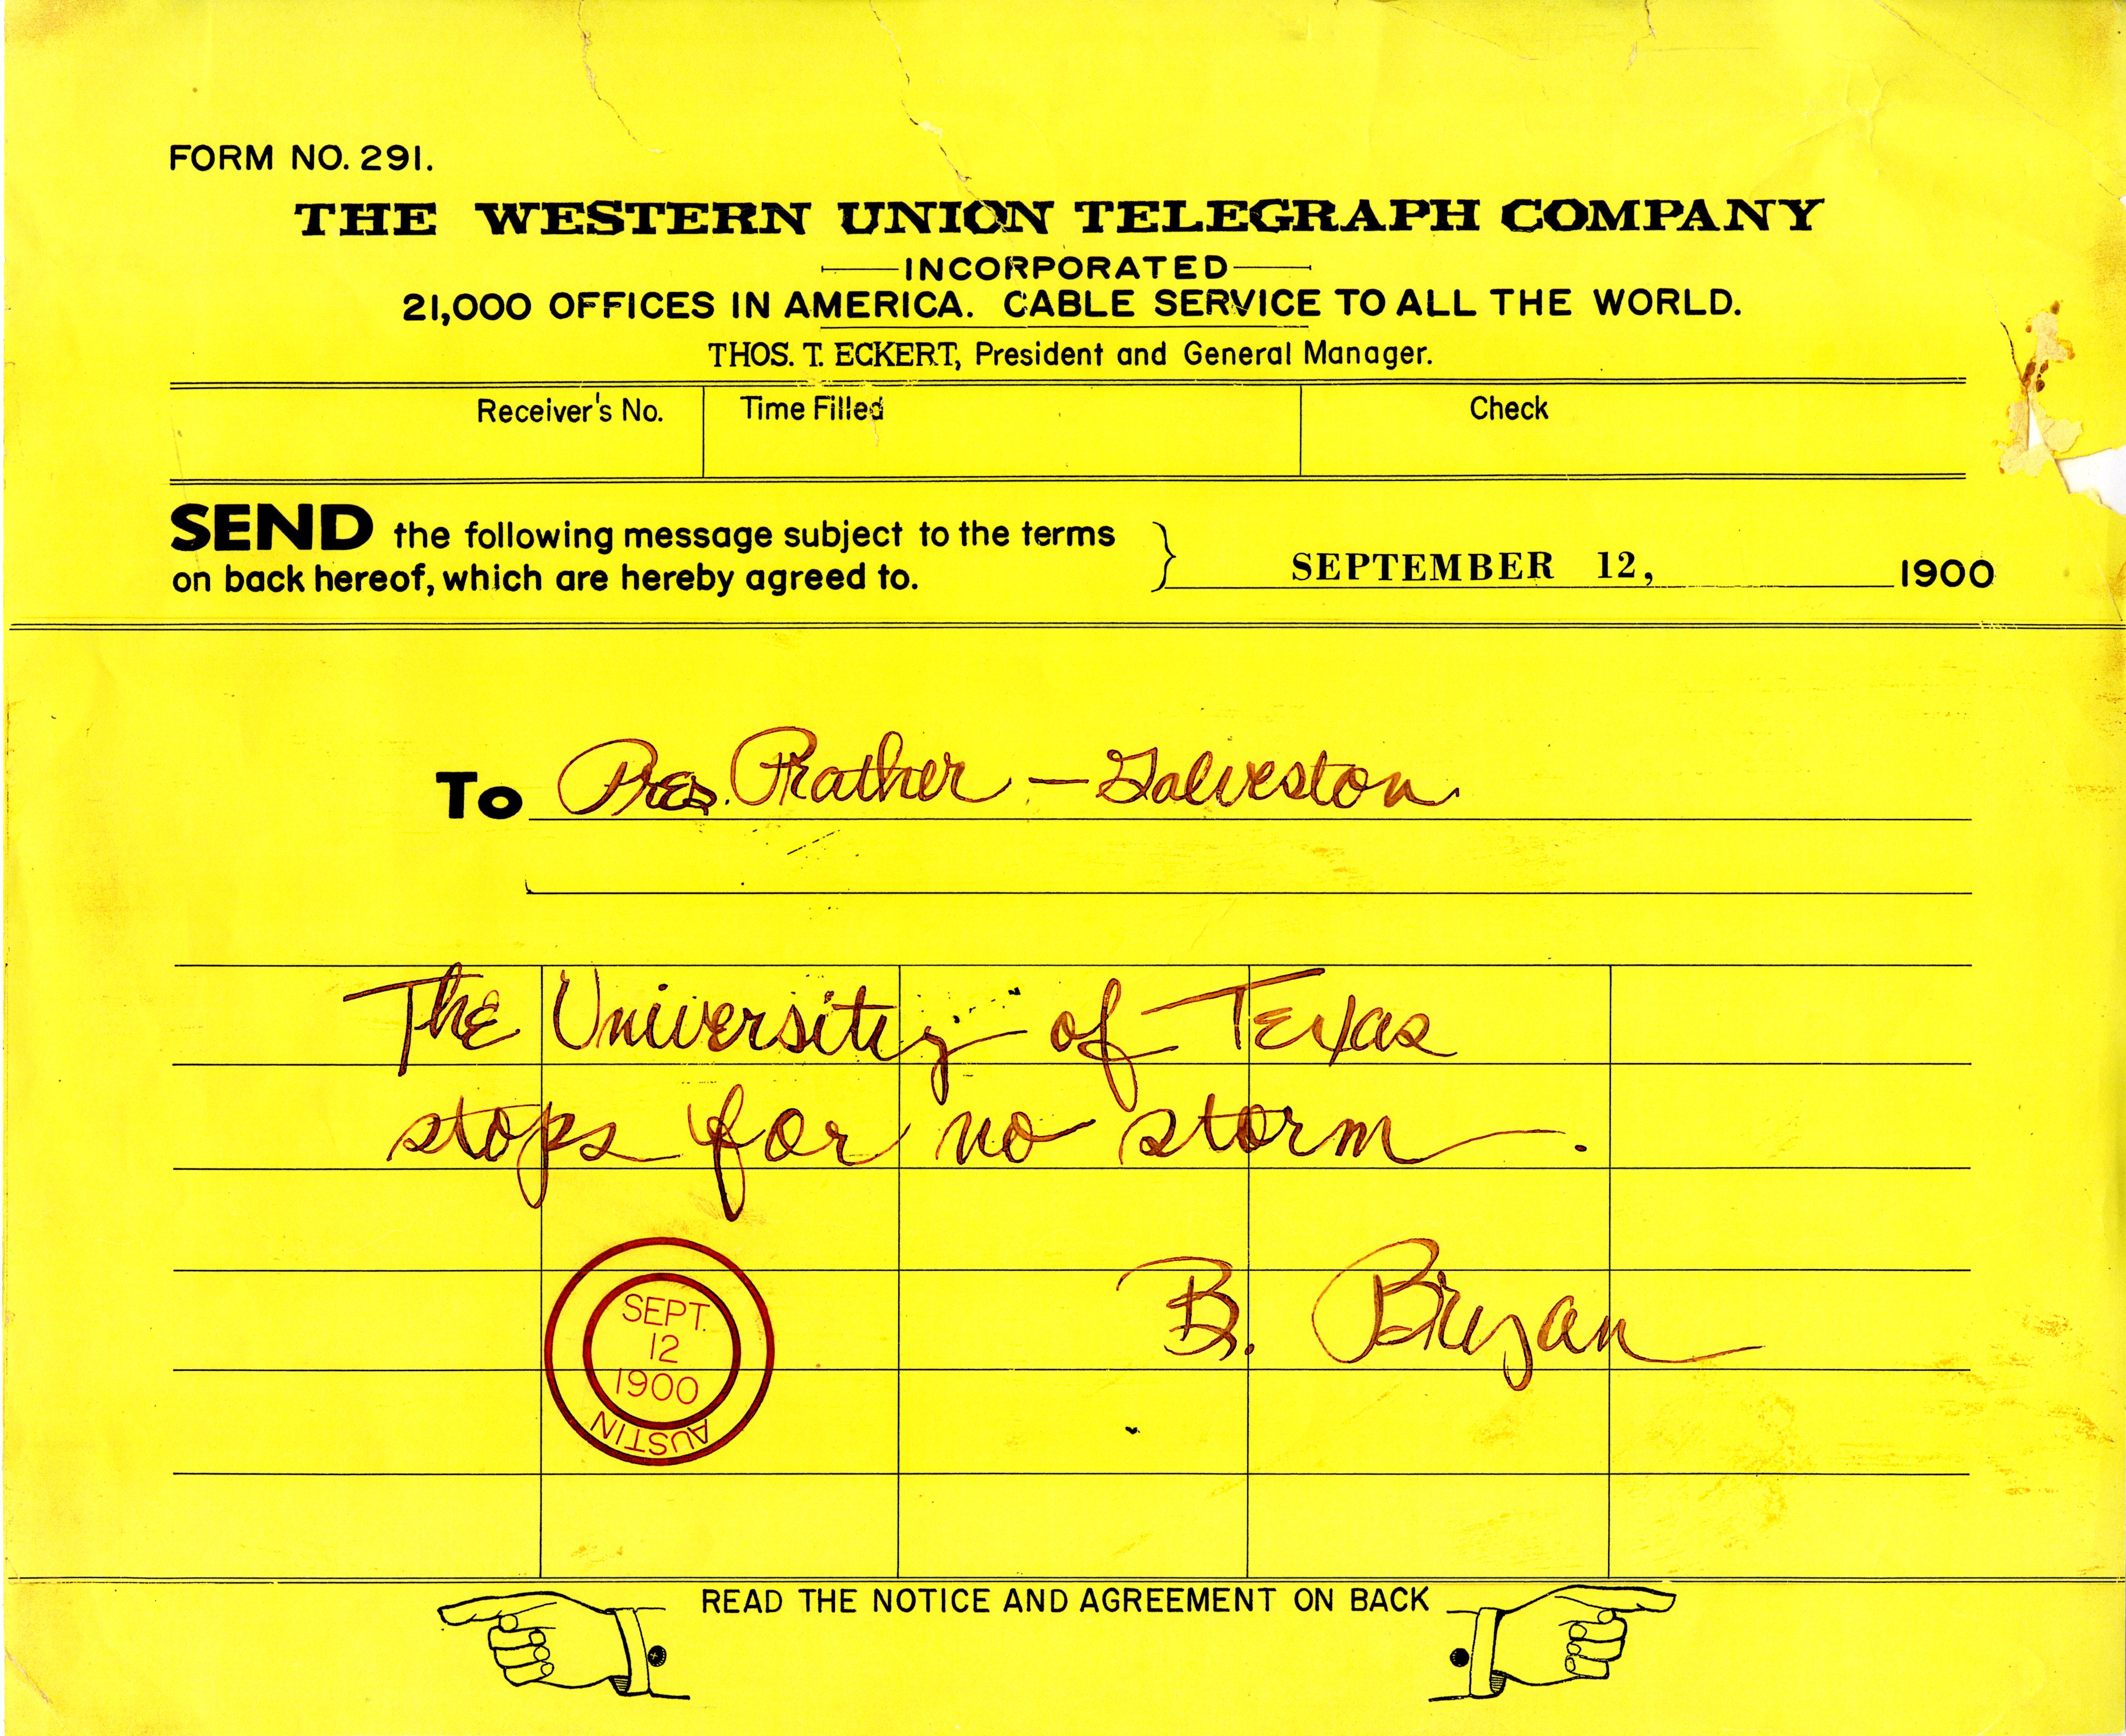 FORM NO. 291.
THE WESTERN UNION TELEGRAPH COMPANY
INCORPORATED
21,000 OFFICES IN AMERICA. CABLE SERVICE TO ALL THE WORLD.
THOS. T. ECKERT, President and General Manager.
Receiver's No. Time Filled Check
SEND the following message subject to the terms
on back hereof, which are hereby agreed to.
SEPTEMBER 12, 1900
To Pres. Prather — Galveston
The University of Texas
stops for no storm.
B. Bryan
SEPT.
12
1900
AUSTIN
READ THE NOTICE AND AGREEMENT ON BACK